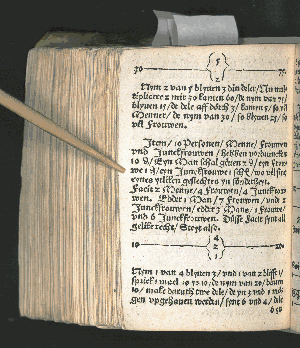 5
30 75
2
Nym 2 van 5 blyven 3 din deler/ Nu mul=
tiplicere 2 mit 30 kamen 60/ de nym van 75/
blyven 15/ de dele aff dorch 3/ kamen 5/ so vel
Menner/ de nym van 30/ so blyven 25/ so
vel Frouwen.
Item/ 10 Personen/ Menne/ Frouwen
vnd Junckfrouwen/ hebben vordruncken
10 ß/ Eyn Man schal geven 2 ß/ eyn Frou=
we 1 ß/ eyn Junckfrouwe wo vel sint
eines yeliken geslechtes yn sünderheit.
Facit 2 Menne/ 4 Frouwen/ 4 Junckfrou
wen. Edder 1 Man/ 7 Frouwen/ vnd 2
Junckfrouwen/ edder 3 Mans/ 1 Frouwe/
vnd 6 Junckfrouwen. Düsse Facit synt all
gelike recht/ Steyt also.
4
10 20
2
1
Nym 1 van 4 blyven 3/ vnd 1 van 2 blifft 1/
sprick 1 mael 10 ys 10/ de nym van 20/ blyven
10/ make daruth twe dele/ de yn 3 vnd 1 mö=
gen vpgehaven werden/ synt 6 vnd 4/ dele